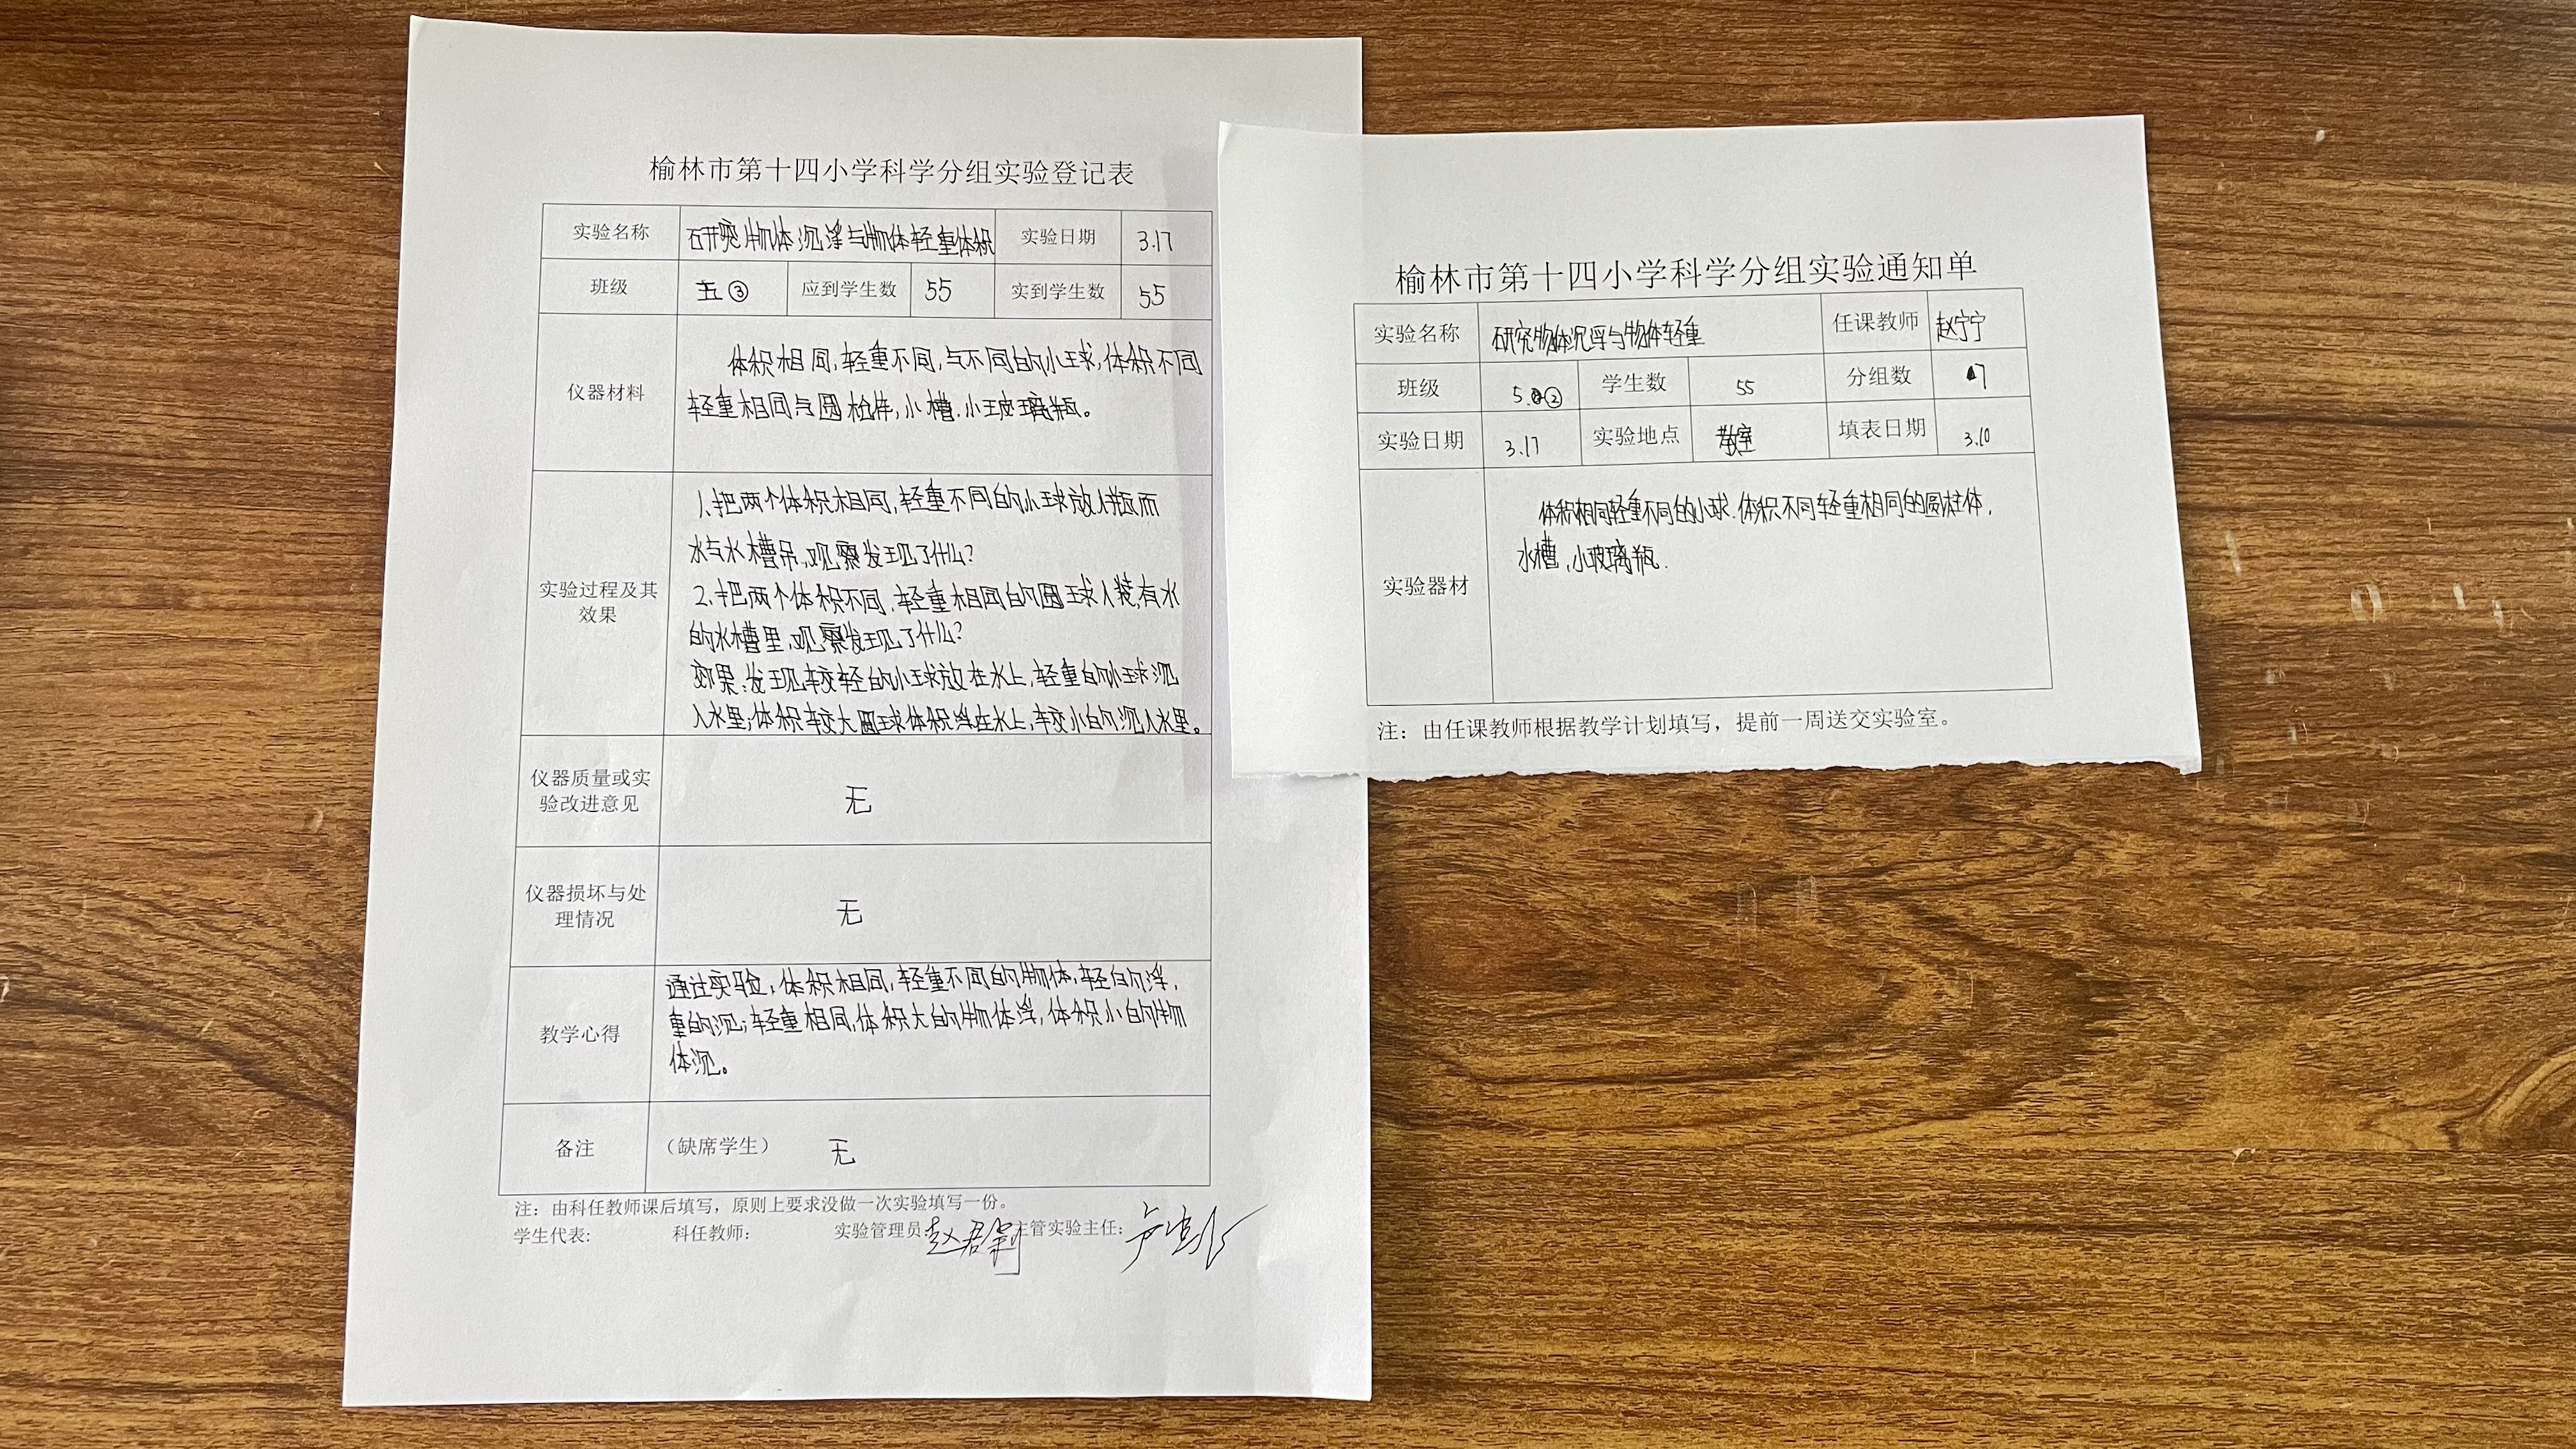 榆林市第十四小学科学分组实验登记表
实验名称 研究物体沉浮与物体轻重体积 实验日期 3.17
班级 五③ 应到学生数 55 实到学生数 55
仪器材料
体积相同,轻重不同,与不同的小球,体积不同
轻重相同与圆柱体,小槽.小玻璃瓶。
实验过程及其
效果
1.把两个体积相同,轻重不同的小球放
水与水槽,观察发现了什么?
2.把两个体积不同,轻重相同的圆球入装有水
的水槽里,观察发现了什么?
效果:发现较轻的小球放在水上,轻重的小球沉
入水里;体积较大圆球体积浮在水上,较小的沉入水里。
仪器质量或实
验改进意见
无
仪器损坏与处
理情况
无
教学心得
通过实验,体积相同,轻重不同的物体,轻的浮,
重的沉;轻重相同,体积大的物体浮,体积小的物
体沉。
备注 (缺席学生) 无
注：由科任教师课后填写，原则上要求没做一次实验填写一份。
学生代表: 科任教师: 实验管理员: 赵君 主管实验主任:
榆林市第十四小学科学分组实验通知单
实验名称 研究物体沉浮与物体轻重 任课教师 赵宁宁
班级 5.② 学生数 55 分组数 7
实验日期 3.17 实验地点 教室 填表日期 3.10
实验器材
体积相同轻重不同的小球.体积不同轻重相同的圆柱体,
水槽,小玻璃瓶.
注：由任课教师根据教学计划填写，提前一周送交实验室。